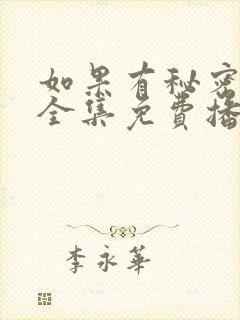 如果有秘密
全集免费播
李永華